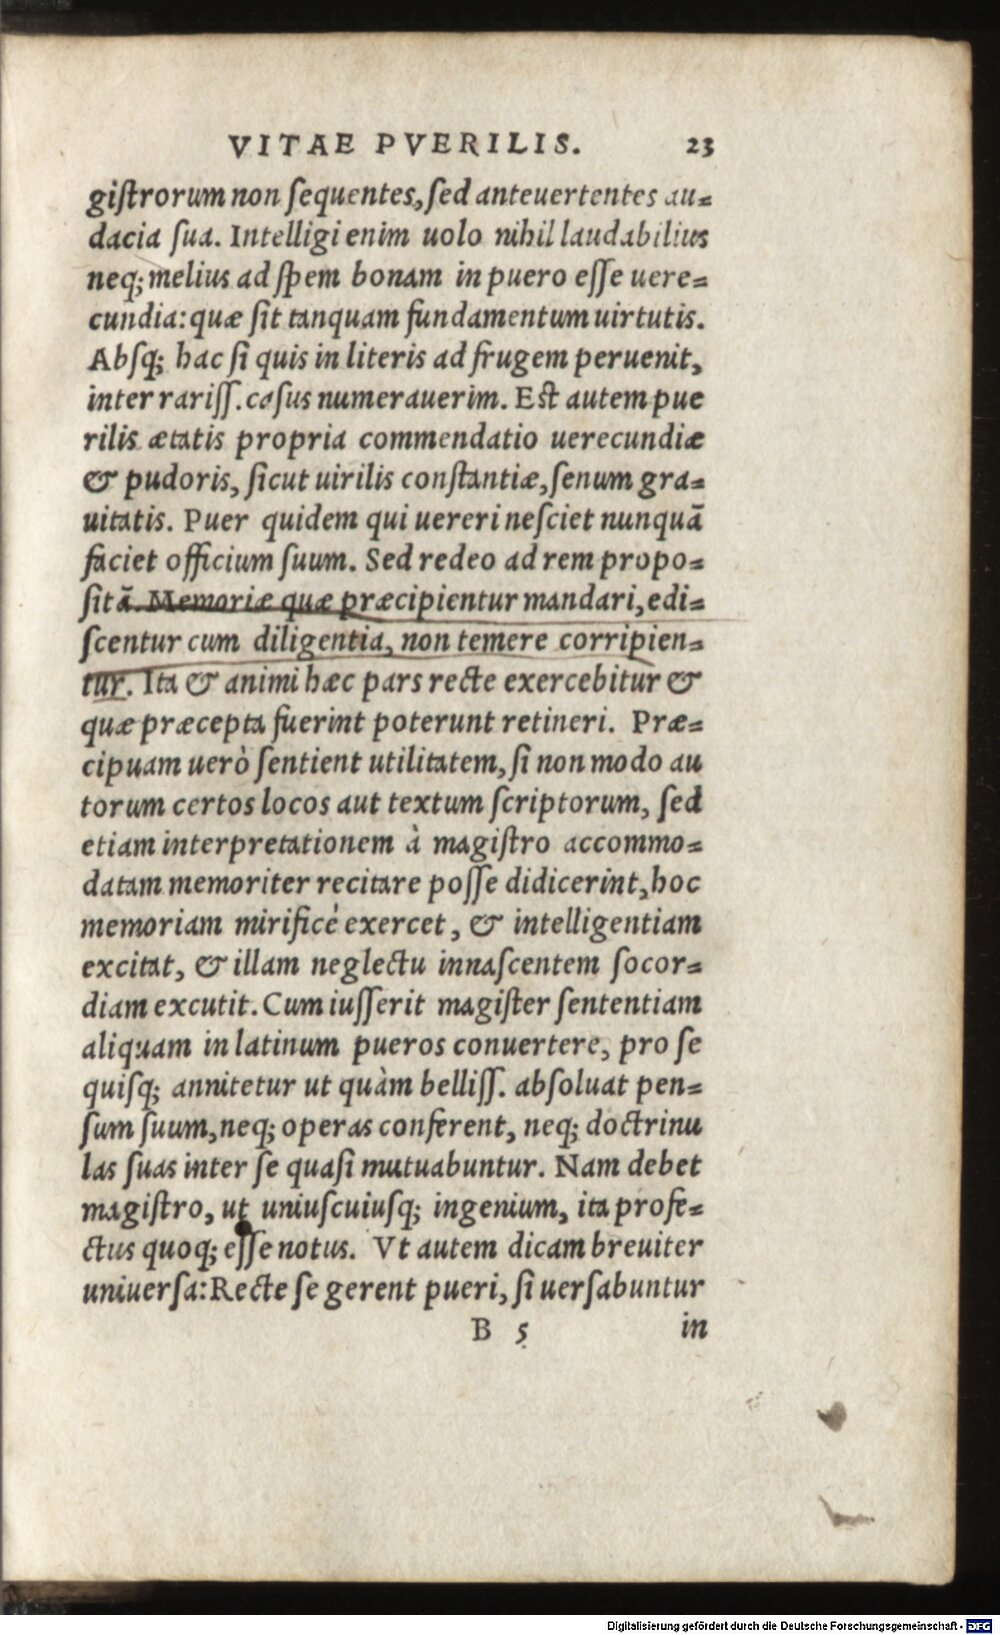 VITAE PVERILIS. 23
giſtrorum non ſequentes, ſed anteuertentes au⸗
dacia ſua. Intelligi enim uolo nihil laudabilius
neq; melius ad ſpem bonam in puero eſſe uere⸗
cundia: quæ ſit tanquam fundamentum uirtutis.
Abſq; hac ſi quis in literis ad frugem peruenit,
inter rariſſ. caſus numerauerim. Eſt autem pue
rilis ætatis propria commendatio uerecundiæ
& pudoris, ſicut uirilis conſtantiæ, ſenum gra⸗
uitatis. Puer quidem qui uereri neſciet nunquã
faciet officium ſuum. Sed redeo ad rem propo⸗
ſitã. Memoriæ quæ præcipientur mandari, edi⸗
ſcentur cum diligentia, non temere corripien⸗
tur. Ita & animi hæc pars recte exercebitur &
quæ præcepta fuerint poterunt retineri. Præ⸗
cipuam uerò ſentient utilitatem, ſi non modo au
torum certos locos aut textum ſcriptorum, ſed
etiam interpretationem à magiſtro accommo⸗
datam memoriter recitare poſſe didicerint, hoc
memoriam mirificè exercet, & intelligentiam
excitat, & illam neglectu innaſcentem ſocor⸗
diam excutit. Cum iuſſerit magiſter ſententiam
aliquam in latinum pueros conuertere, pro ſe
quiſq; annitetur ut quàm belliſſ. abſoluat pen⸗
ſum ſuum, neq; operas conferent, neq; doctrinu
las ſuas inter ſe quaſi mutuabuntur. Nam debet
magiſtro, ut uniuſcuiuſq; ingenium, ita profe⸗
ctus quoq; eſſe notus. Vt autem dicam breuiter
uniuerſa: Recte ſe gerent pueri, ſi uerſabuntur
B 5 in
Digitalisierung gefördert durch die Deutsche Forschungsgemeinschaft - DFG